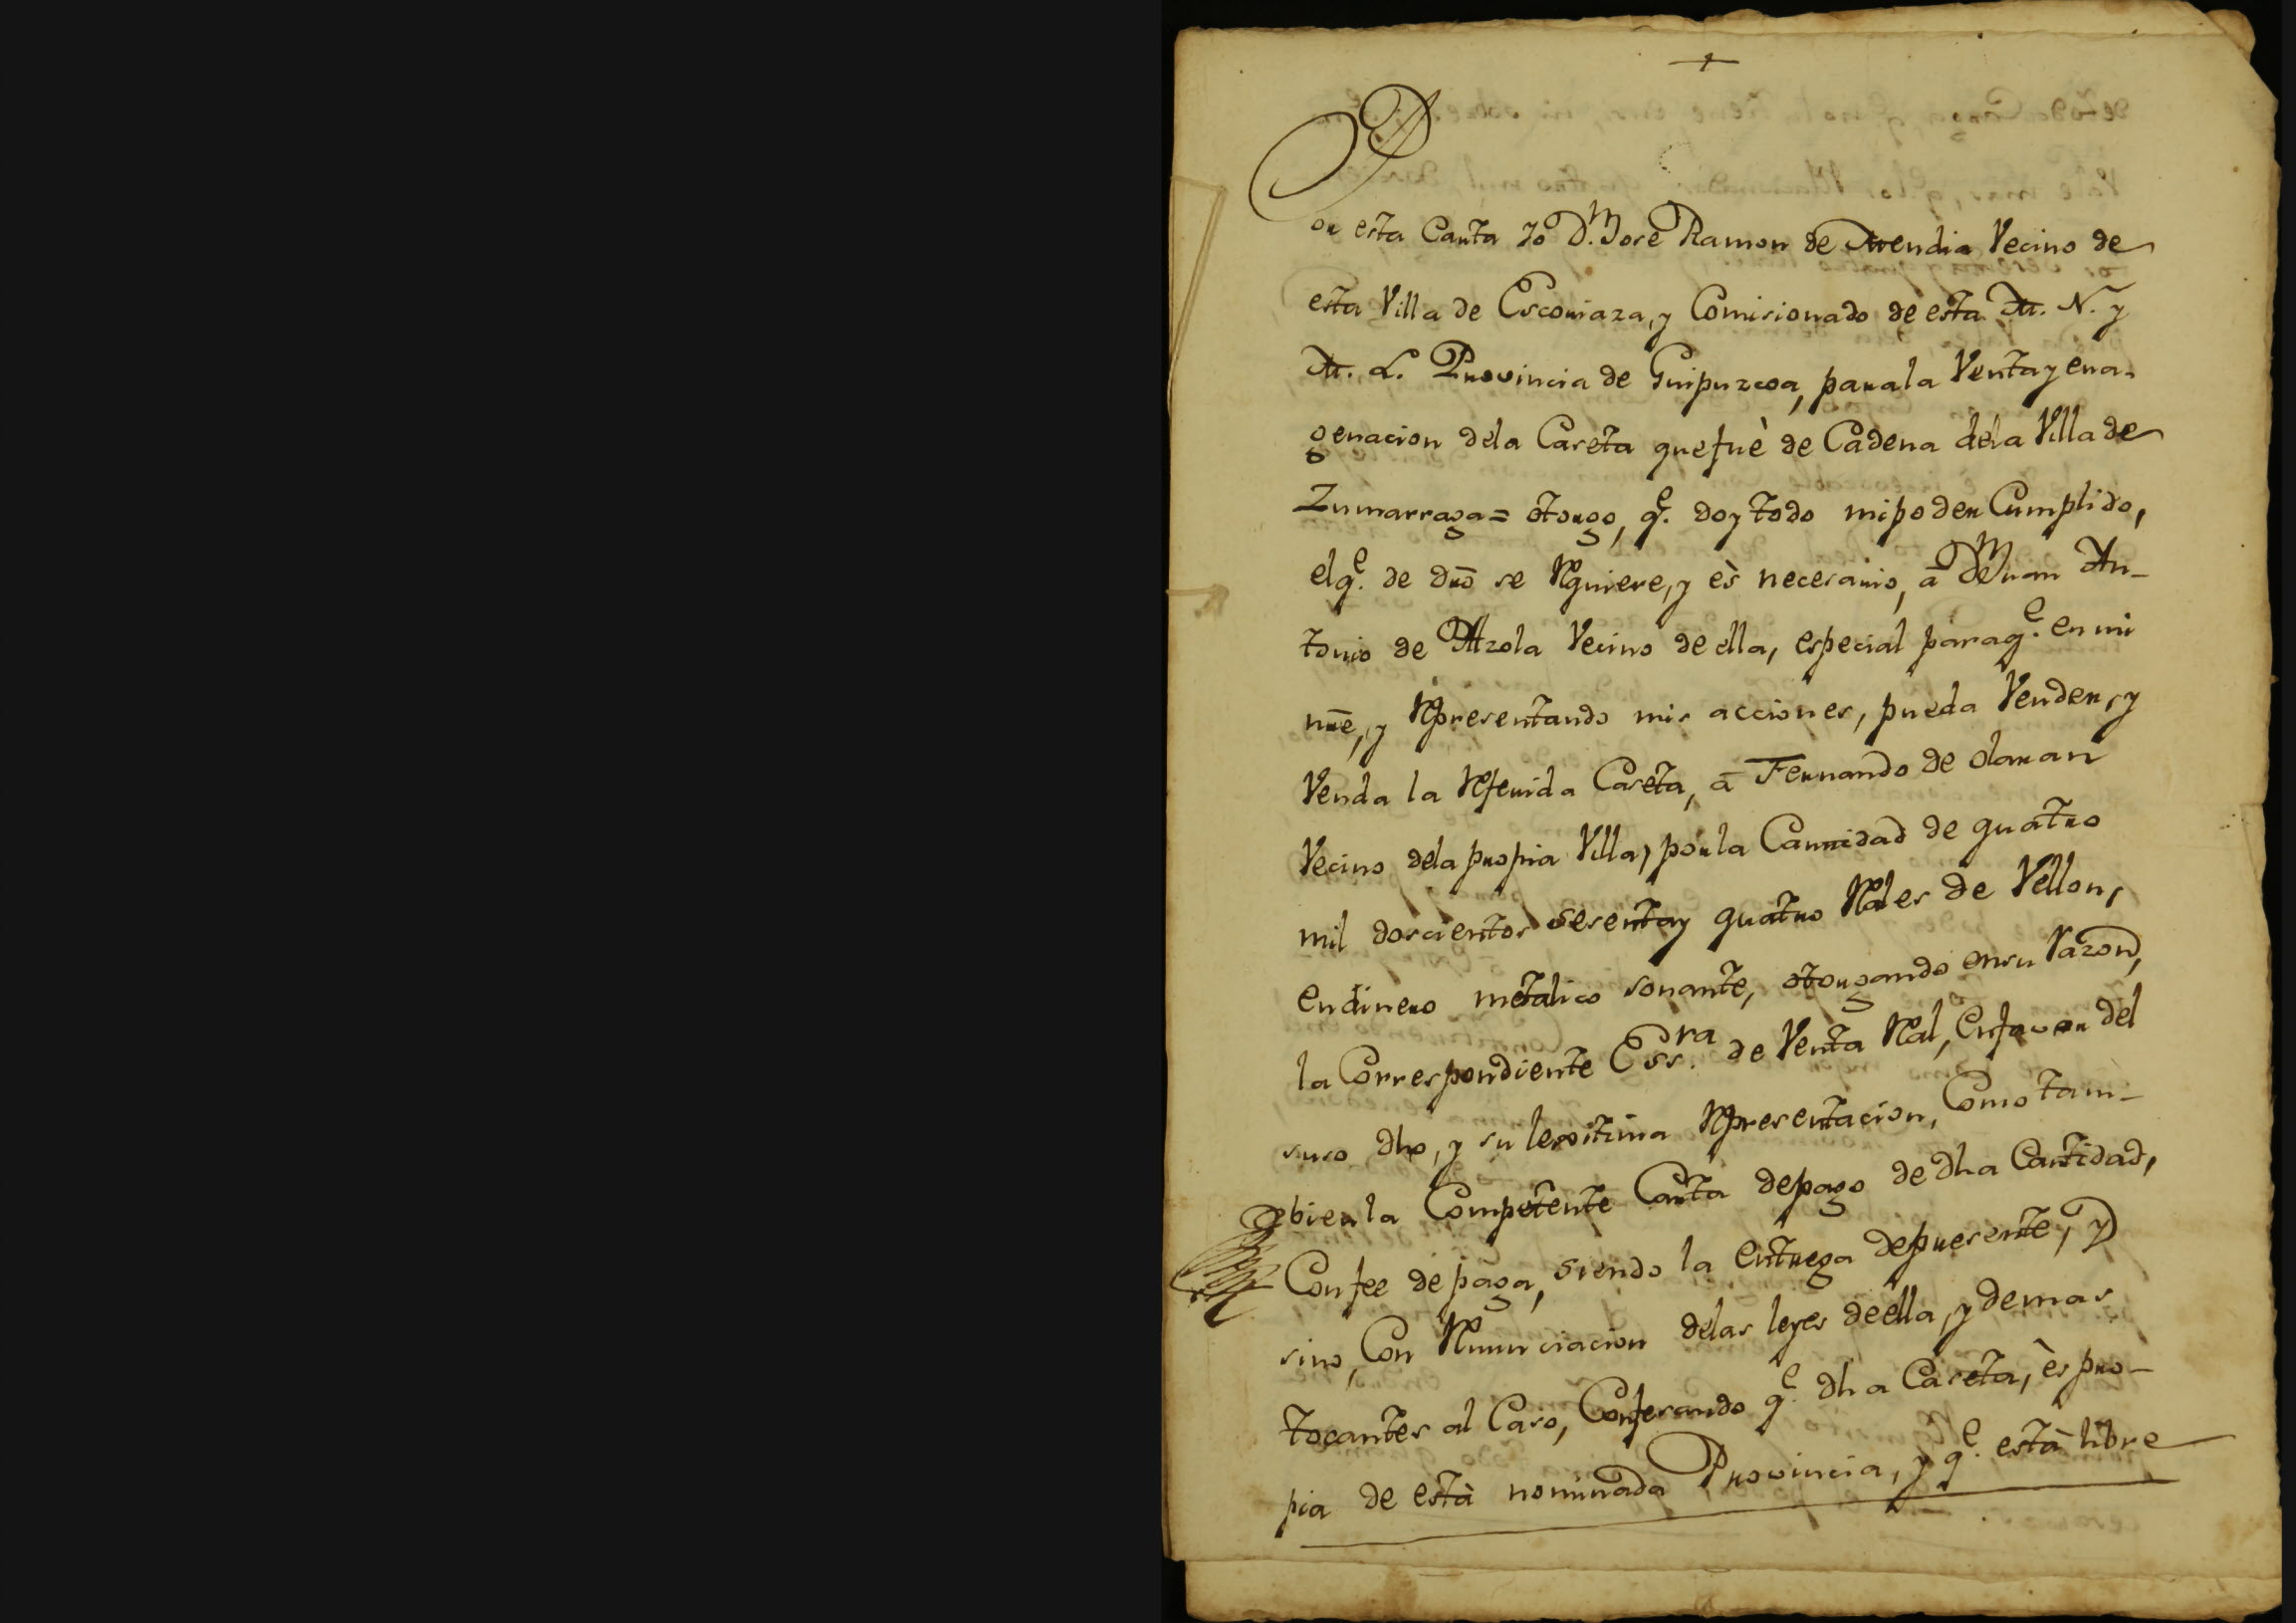 Por esta Carta Yo Dn. Josè Ramon de Avendia Vecino de
esta Villa de Escoriaza, y Comisionado de esta M. N. y
M. L. Provincia de Guipuzcoa, para la Venta y ena-
genacion dela Caseta que fuè de Cadena dela Villa de
Zumarraga = otorgo, qe. doy todo mi poder Cumplido,
el qe. de dro se Rquiere, y ès necesario, a Dn Juan An-
tonio de Azola Vecino de ella, especial para qe. en mi
nre, y Rpresentando mis acciones, pueda Vender, y
Venda la Rferida Caseta, a Fernando de Olaran
Vecino dela propia Villa, por la Cantidad de quatro
mil doscientos sesenta y quatro Rales de Vellon,
en dinero metalico sonante, otorgando en su Razon,
la Correspondiente Essra. de Venta Ral, en favor del
suso dho, y su lexitima Rpresentacion, Como tam-
bien la Competente Carta de pago de dha Cantidad,
Con fee de paga, siendo la entrega de presente, y
sino, Con Rnunciacion delas leyes de ella, y demas
tocantes al Caso, Confesando qe. dha Caseta, ès pro-
pia de està nominada Provincia, y qe. està libre